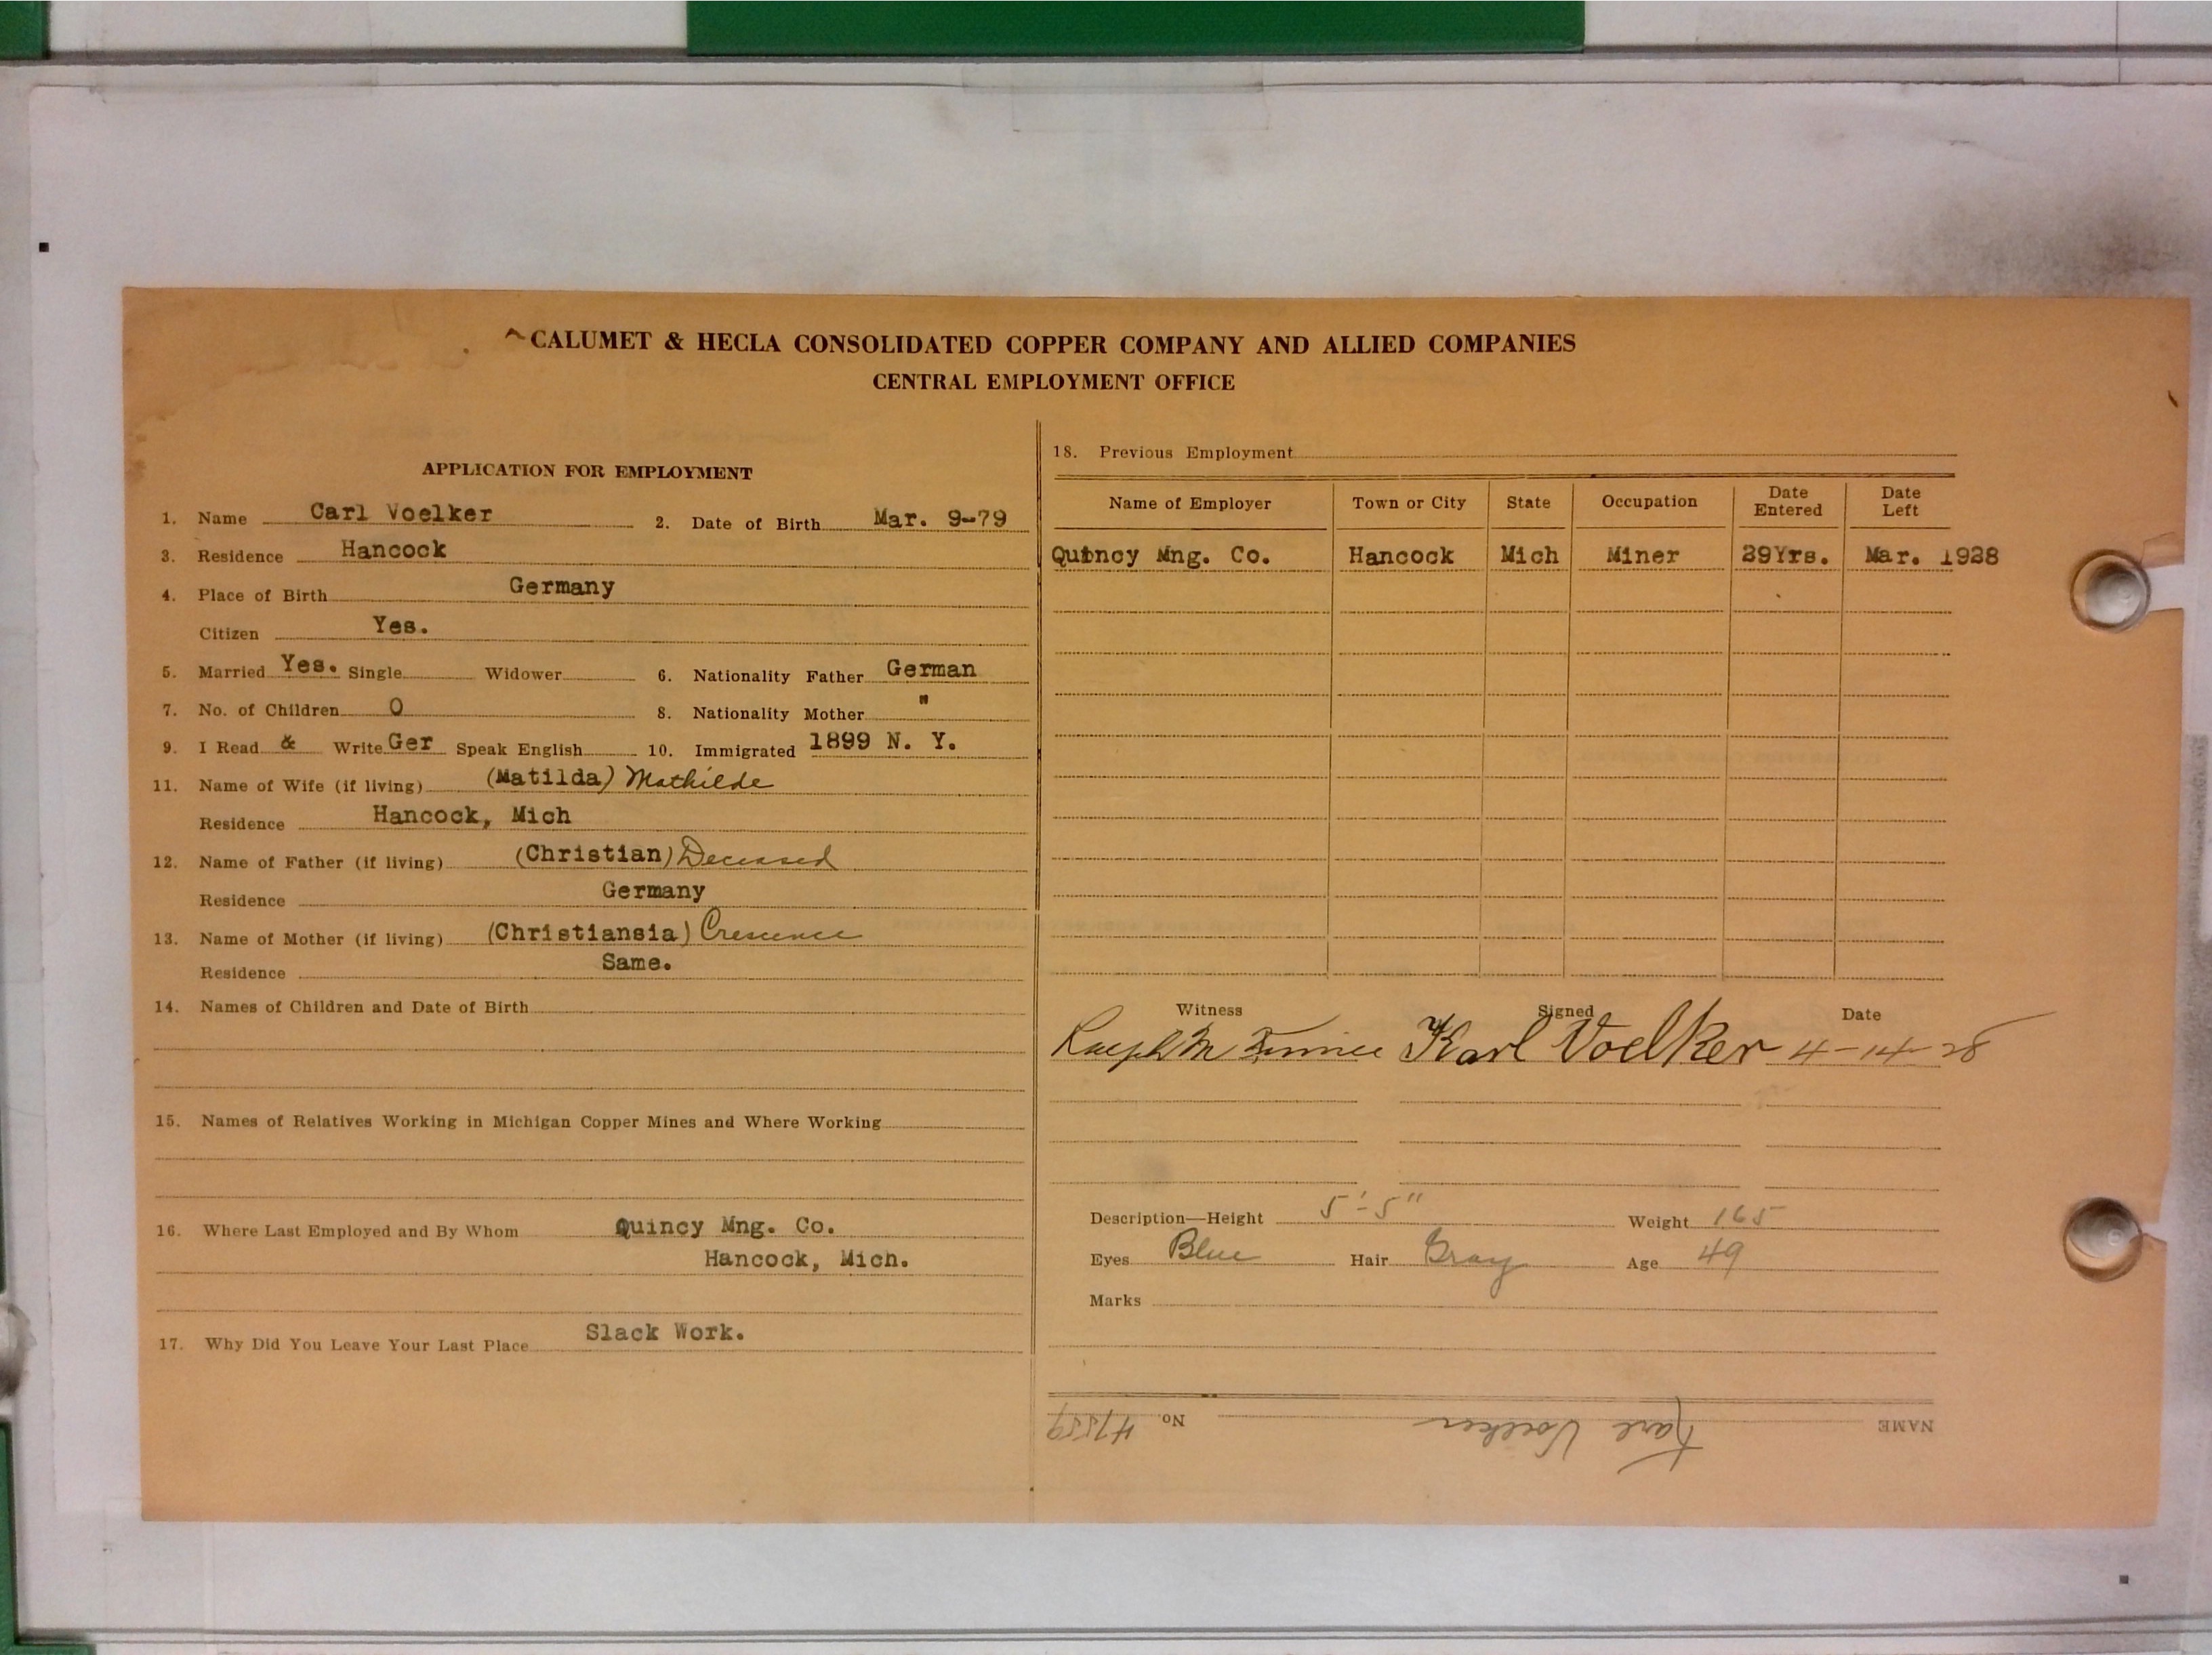 CALUMET & HECLA CONSOLIDATED COPPER COMPANY AND ALLIED COMPANIES
CENTRAL EMPLOYMENT OFFICE
APPLICATION FOR EMPLOYMENT
1. Name Carl Voelker 2. Date of Birth Mar. 9-79
3. Residence Hancock
4. Place of Birth Germany
Citizen Yes.
5. Married Yes. Single Widower 6. Nationality Father German
7. No. of Children 0 8. Nationality Mother "
9. I Read & Write Ger Speak English 10. Immigrated 1899 N. Y.
11. Name of Wife (if living) (Matilda) Mathilde
Residence Hancock, Mich
12. Name of Father (if living) (Christian) Deceased
Residence Germany
13. Name of Mother (if living) (Christiansia) Crescence
Residence Same.
14. Names of Children and Date of Birth
15. Names of Relatives Working in Michigan Copper Mines and Where Working
16. Where Last Employed and By Whom Quincy Mng. Co.
Hancock, Mich.
17. Why Did You Leave Your Last Place Slack Work.
18. Previous Employment
Name of Employer Town or City State Occupation Date Entered Date Left
Quincy Mng. Co. Hancock Mich Miner 29Yrs. Mar. 1928
Witness Signed Date
Ralph M Karl Voelker 4-14-28
Description—Height 5'-5" Weight 165
Eyes Blue Hair Gray Age 49
Marks
NAME Karl Voelker No.